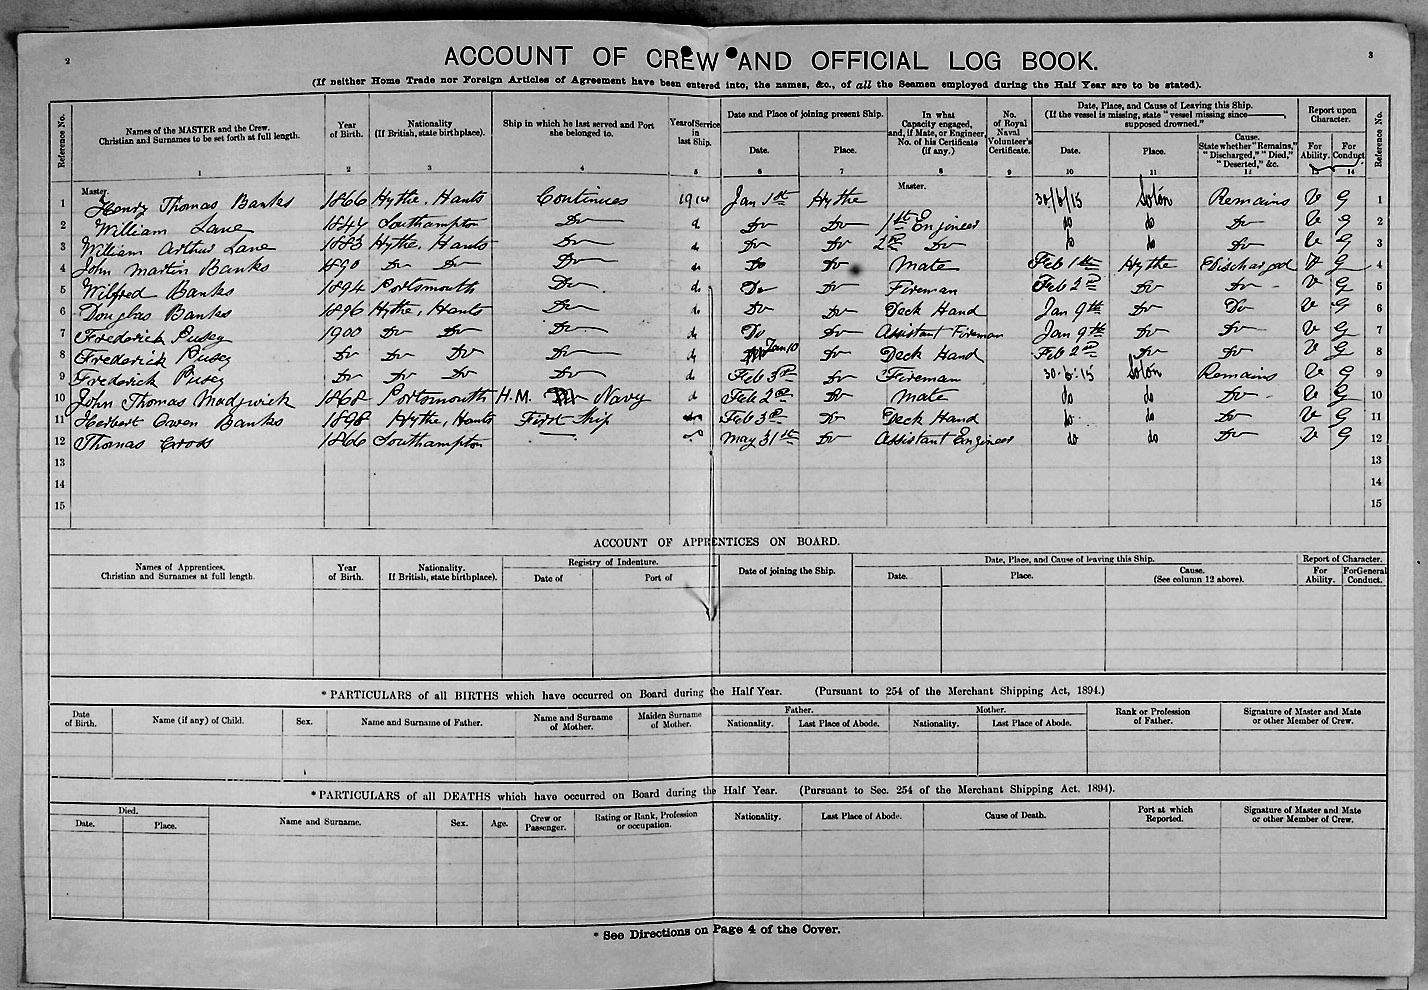 2
3
ACCOUNT OF CREW AND OFFICIAL LOG BOOK.
(If neither Home Trade nor Foreign Articles of Agreement have been entered into, the names, &c., of all the Seamen employed during the Half Year are to be stated).
Reference No. | Names of the MASTER and the Crew. Christian and Surnames to be set forth at full length. | Year of Birth. | Nationality (If British, state birthplace). | Ship in which he last served and Port she belonged to. | Year of Service in last Ship. | Date and Place of joining present Ship. Date. | Place. | In what Capacity engaged, and, if Mate, or Engineer, No. of his Certificate (if any.) | No. of Royal Naval Volunteer's Certificate. | Date, Place, and Cause of Leaving this Ship. (If the vessel is missing, state "vessel missing since———, supposed drowned." Date. | Place. | Cause. State whether "Remains," "Discharged," "Died," "Deserted," &c. | Report upon Character. For Ability. | For Conduct | Reference No.
1 2 3 4 5 6 7 8 9 10 11 12 13 14
Master. Master.
1 Henry Thomas Banks 1866 Hythe, Hants Continues 1914 Jan 1st Hythe 30/6/15 Soton Remains V G 1
2 William Lane 1844 Southampton Do d Do Do 1st Engineer do do Do V G 2
3 William Arthur Lane 1883 Hythe, Hants Do d Do Do 2nd Do do do Do V G 3
4 John Martin Banks 1890 Do Do Do d Do Do Mate Feb 1st Hythe Discharged V G 4
5 Wilfred Banks 1894 Portsmouth Do d Do Do Fireman Feb 2nd Do Do V G 5
6 Douglas Banks 1896 Hythe, Hants Do d Do Do Deck Hand Jan 9th Do Do V G 6
7 Frederick Pusey 1900 Do Do Do d Do Do Assistant Fireman Jan 9th Do Do V G 7
8 Frederick Pusey Do Do Do Do d Jan 10 Do Deck Hand Feb 2nd Do Do V G 8
9 Frederick Pusey Do Do Do Do d Feb 3rd Do Fireman 30.6.15 Soton Remains V G 9
10 John Thomas Madgwick 1868 Portsmouth H.M. Navy d Feb 2nd Do Mate do do Do V G 10
11 Herbert Owen Banks 1898 Hythe, Hants First Ship Feb 3rd Do Deck Hand do do Do V G 11
12 Thomas Cross 1866 Southampton — May 31st Do Assistant Engineer do do Do V G 12
13 13
14 14
15 15
ACCOUNT OF APPRENTICES ON BOARD.
Names of Apprentices. Christian and Surnames at full length. | Year of Birth. | Nationality. (If British, state birthplace). | Registry of Indenture. Date of | Port of | Date of joining the Ship. | Date, Place, and Cause of leaving this Ship. Date. | Place. | Cause. (See column 12 above). | Report of Character. For Ability. | For General Conduct.
* PARTICULARS of all BIRTHS which have occurred on Board during the Half Year. (Pursuant to 254 of the Merchant Shipping Act, 1894.)
Date of Birth. | Name (if any) of Child. | Sex. | Name and Surname of Father. | Name and Surname of Mother. | Maiden Surname of Mother. | Father. Nationality. | Last Place of Abode. | Mother. Nationality. | Last Place of Abode. | Rank or Profession of Father. | Signature of Master and Mate or other Member of Crew.
* PARTICULARS of all DEATHS which have occurred on Board during the Half Year. (Pursuant to Sec. 254 of the Merchant Shipping Act, 1894).
Died. Date. | Place. | Name and Surname. | Sex. | Age. | Crew or Passenger. | Rating or Rank, Profession or occupation. | Nationality. | Last Place of Abode. | Cause of Death. | Port at which Reported. | Signature of Master and Mate or other Member of Crew.
* See Directions on Page 4 of the Cover.